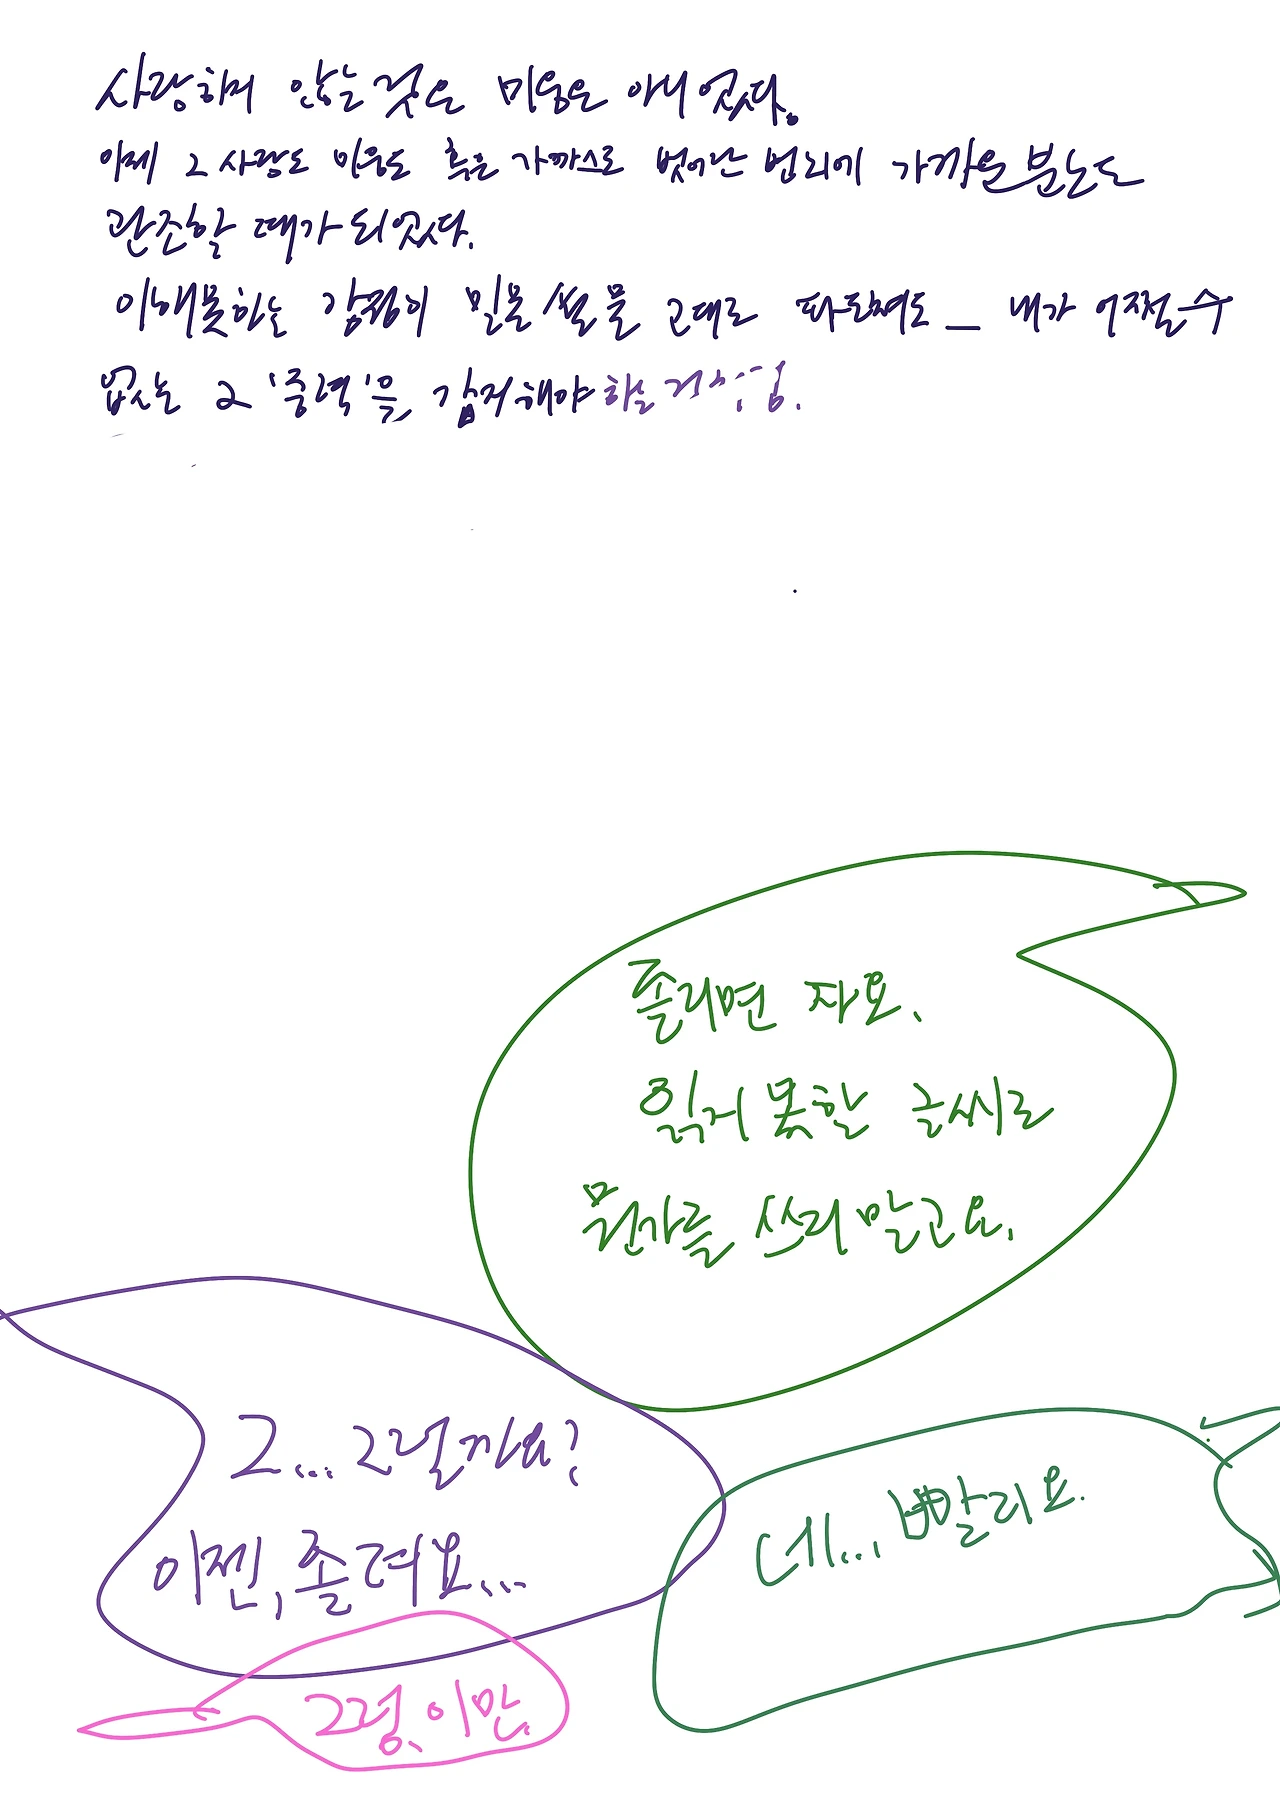 사랑하지 않는 것은 미움은 아니었다.
이제 그 사랑도 미움도 혹은 가까스로 벗어난 법리에 가까운 분노도
관조할 때가 되었다.
이해못하는 감정이 밀물 썰물 그대로 파도쳐도 _ 내가 어쩔수
없는 그 '중력'을 감지해야 하는
졸리면 자요.
읽지 못할 글씨로
뭔가를 쓰지 말고요.
그... 그럴까요?
이젠, 졸려요...
네..., 빨리요.
그럼, 이만.